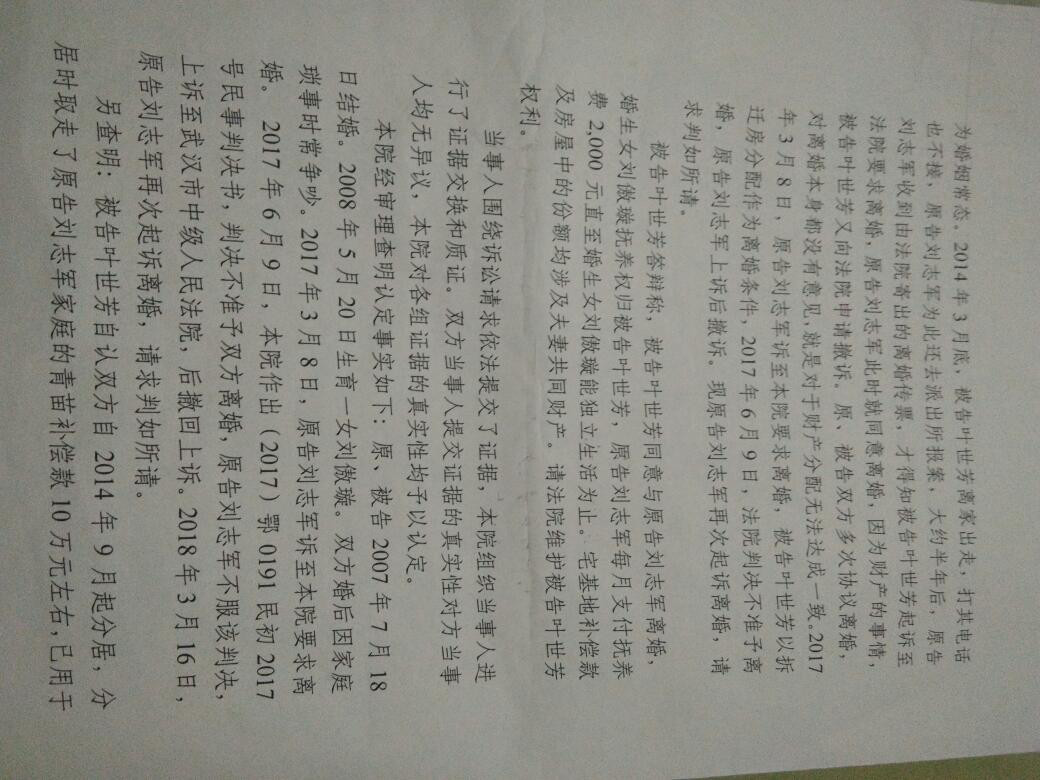 为婚姻常态。2014年3月底，被告叶世芳离家出走，打其电话
也不接，原告刘志军为此还去派出所报案，大约半年后，原告
刘志军收到由法院寄出的离婚传票，才得知被告叶世芳起诉至
法院要求离婚，原告刘志军此时就同意离婚，因为财产的事情，
被告叶世芳又向法院申请撤诉。原、被告双方多次协议离婚，
对离婚本身都没有意见，就是对于财产分配无法达成一致。2017
年3月8日，原告刘志军诉至本院要求离婚，被告叶世芳以拆
迁房分配作为离婚条件，2017年6月9日，法院判决不准予离
婚，原告刘志军上诉后撤诉。现原告刘志军再次起诉离婚，请
求判如所请。
被告叶世芳答辩称，被告叶世芳同意与原告刘志军离婚，
婚生女刘傲璇抚养权归被告叶世芳，原告刘志军每月支付抚养
费2,000元直至婚生女刘傲璇能独立生活为止。宅基地补偿款
及房屋中的份额均涉及夫妻共同财产。请法院维护被告叶世芳
权利。
当事人围绕诉讼请求依法提交了证据，本院组织当事人进
行了证据交换和质证。双方当事人提交证据的真实性对方当事
人均无异议，本院对各组证据的真实性均予以认定。
本院经审理查明认定事实如下：原、被告2007年7月18
日结婚。2008年5月20日生育一女刘傲璇。双方婚后因家庭
琐事时常争吵。2017年3月8日，原告刘志军诉至本院要求离
婚。2017年6月9日，本院作出（2017）鄂0191民初2017
号民事判决书，判决不准予双方离婚，原告刘志军不服该判决，
上诉至武汉市中级人民法院，后撤回上诉。2018年3月16日，
原告刘志军再次起诉离婚，请求判如所请。
另查明：被告叶世芳自认双方自2014年9月起分居，分
居时取走了原告刘志军家庭的青苗补偿款10万元左右，已用于